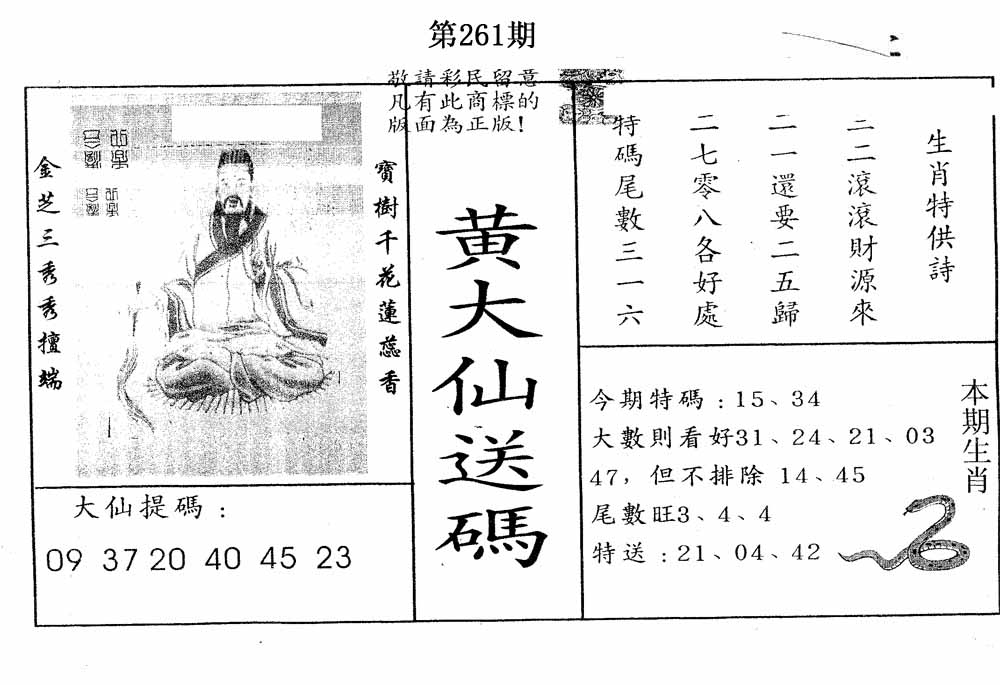 第261期
敬請彩民留意
凡有此商標的
版面為正版!
寶樹千花蓮蕊香
金芝三秀秀擅端
黃大仙送碼
生肖特供詩
二二滾滾財源來
二一還要二五歸
二七零八各好處
特碼尾數三一六
大仙提碼：
09 37 20 40 45 23
本期生肖
今期特碼：15、34
大數則看好31、24、21、03
47，但不排除 14、45
尾數旺3、4、4
特送：21、04、42